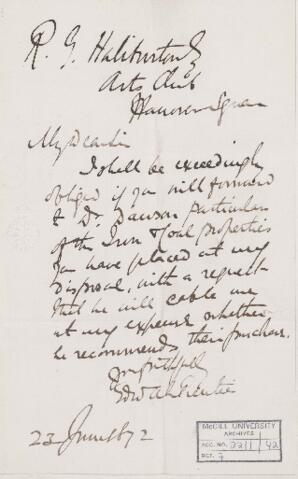 R. G. Haliburton Esq
Arts Club
Hanover Square
My dear Sir
I shall be exceedingly
obliged if you will forward
to Dr. Dawson particulars
of the Iron & Coal properties
you have placed at my
disposal, with a request
that he will cable me
at my expense whether
he recommends their purchase.
Yrs faithfully
23 June 1872
McGILL UNIVERSITY
ARCHIVES
ACC. NO. 2211/42
REF. 7